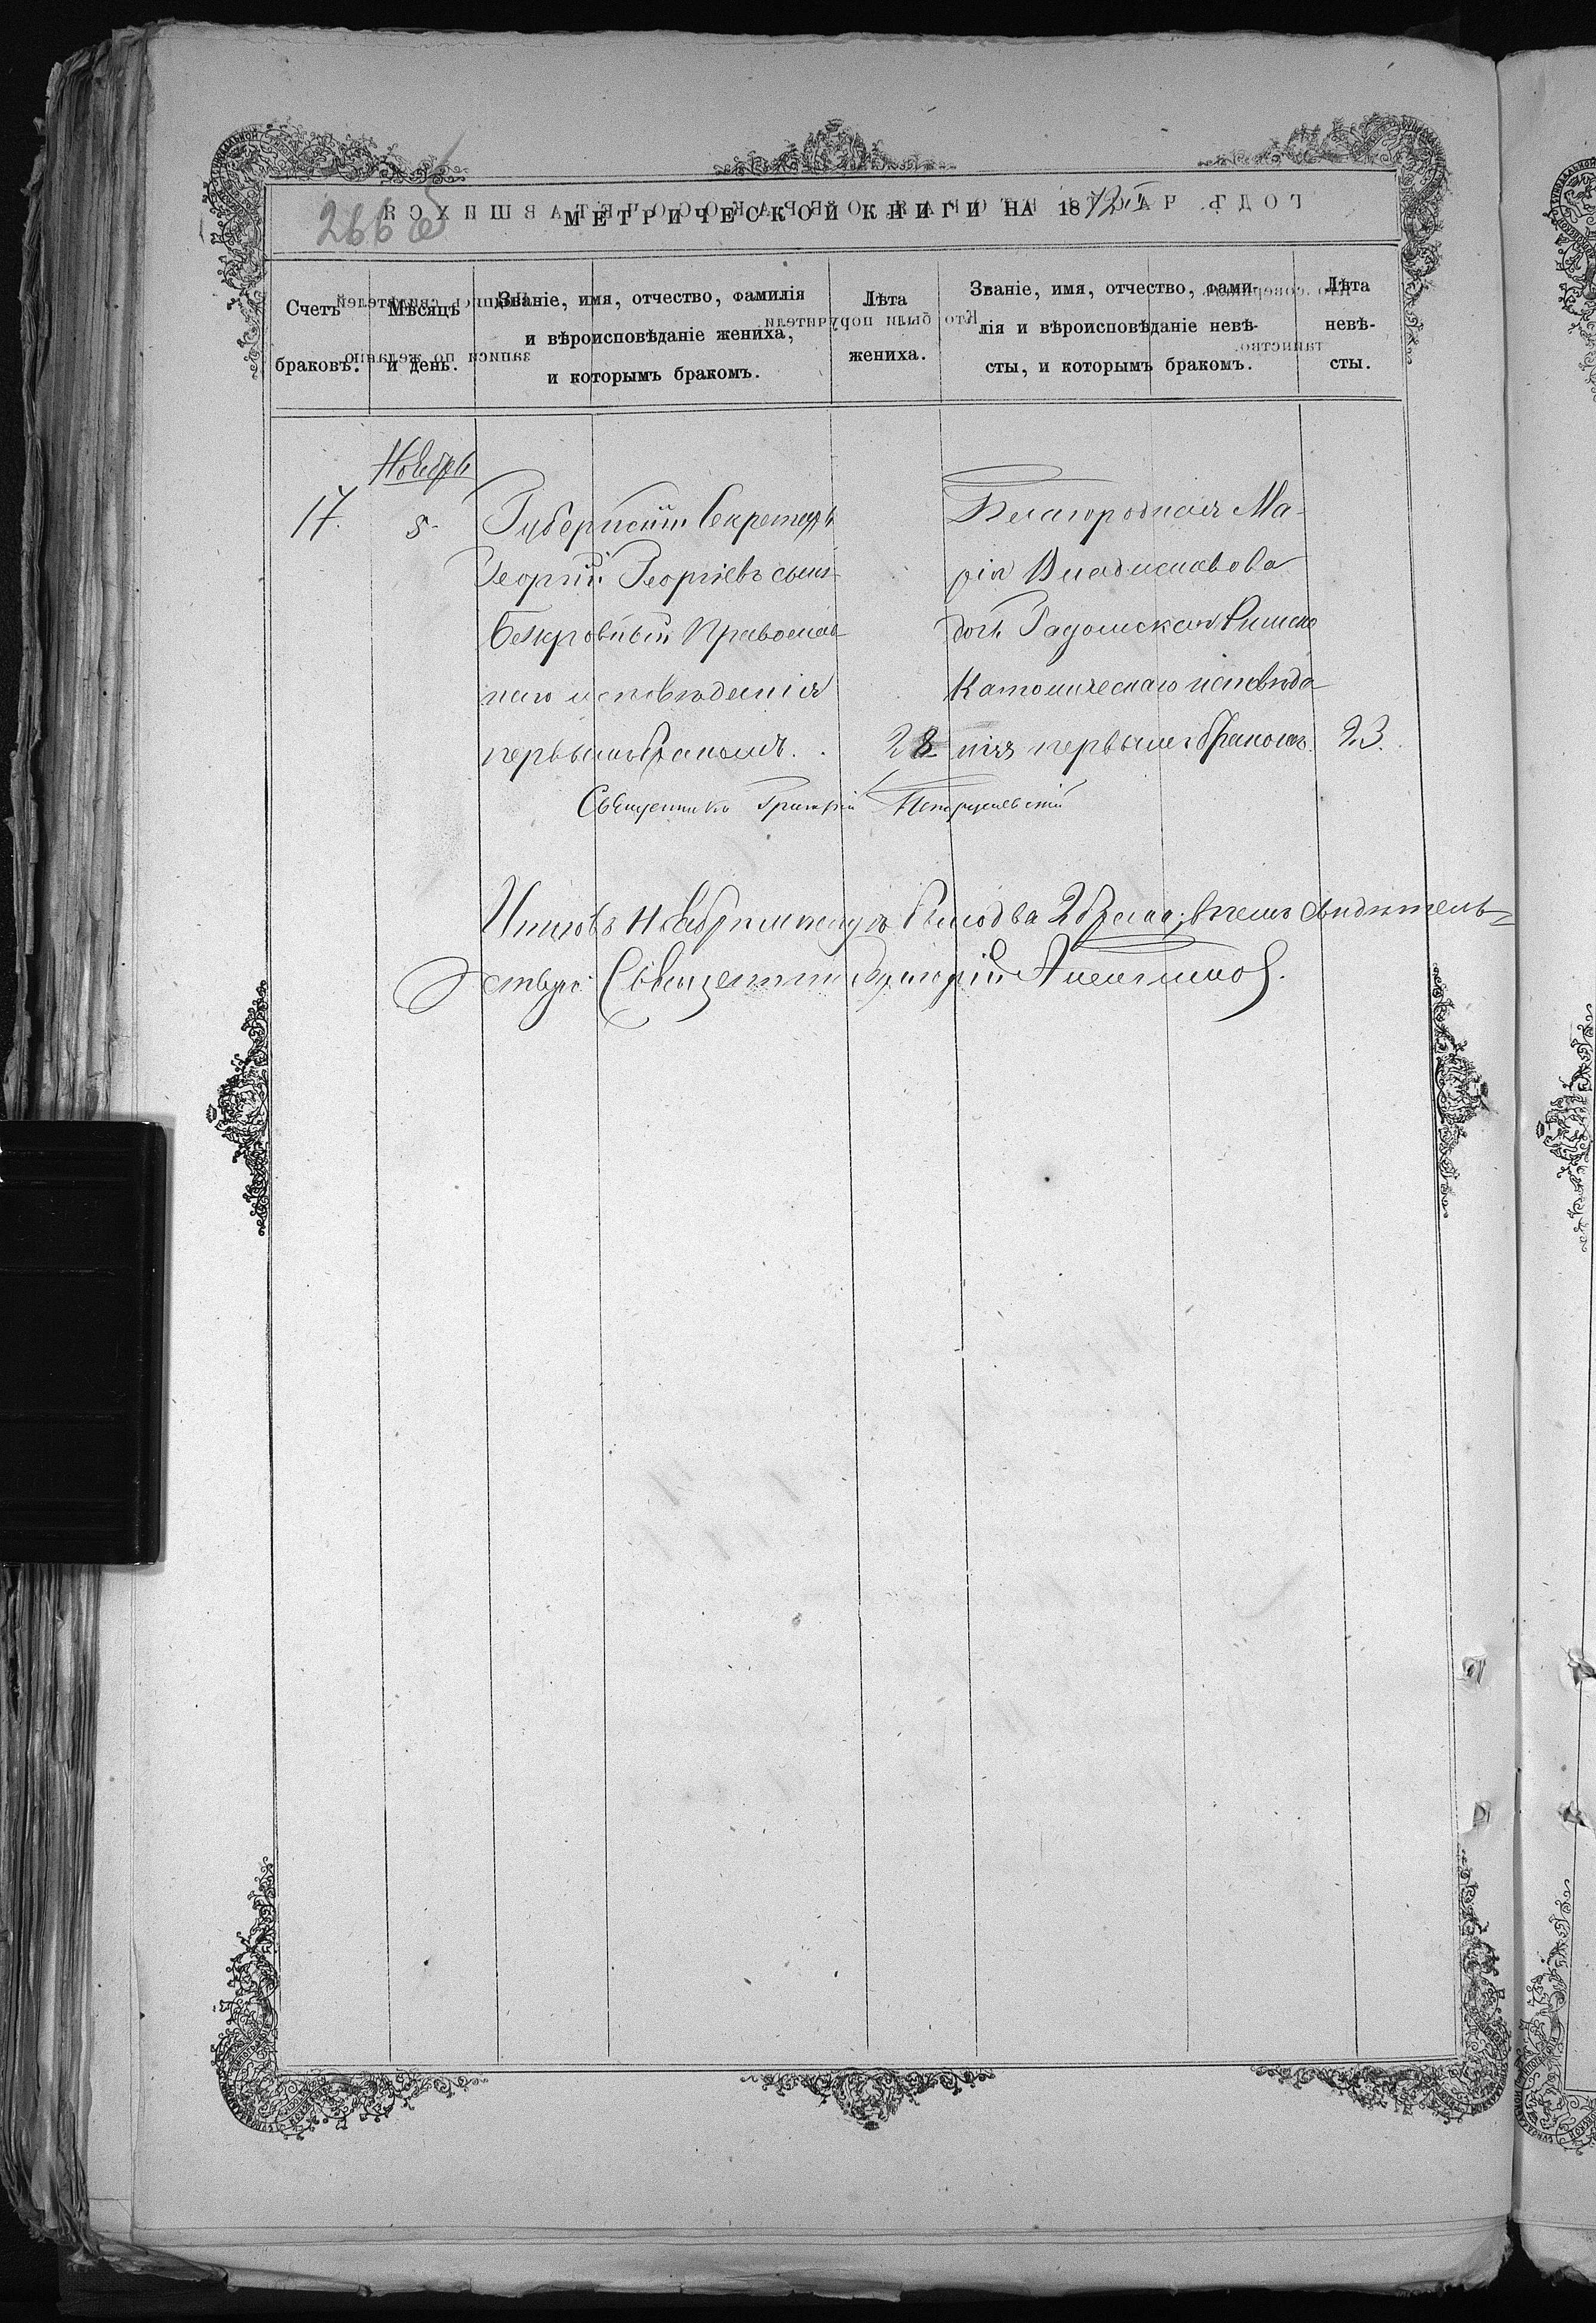 266 об
МЕТРИЧЕСКОЙ КНИГИ НА 1872
Счетъ браковъ.
Мѣсяцъ и день.
Званіе, имя, отчество, фамилія
и вѣроисповѣданіе жениха,
и которымъ бракомъ.
Лѣта
жениха.
Званіе, имя, отчество, фами-
лія и вѣроисповѣданіе невѣ-
сты, и которымъ бракомъ.
Лѣта
невѣ-
сты.
Ноябрь
17.
5.
Губернскій Секретарь
Георгій Георгіевъ сынъ
Безкровный Православ
наго исповѣданія
первымъ бракомъ.
28
Благородная Ма-
рія Владиславова
дочь Радомская Римско
Католическаго исповѣда
нія первымъ бракомъ.
23.
Священникъ Григорій
Итого въ Ноябрѣ мѣсяцѣ было два 2 брака; въ чемъ свидѣтель-
ствую: Священникъ